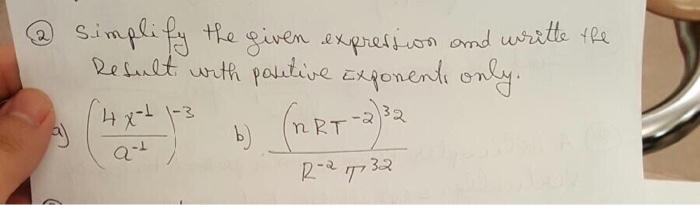 ② Simplify the given expression and writte the
Result with positive Exponents only.
a) (4x⁻¹ / a⁻¹)⁻³ b) (nRT⁻²)³² / R⁻² T³²